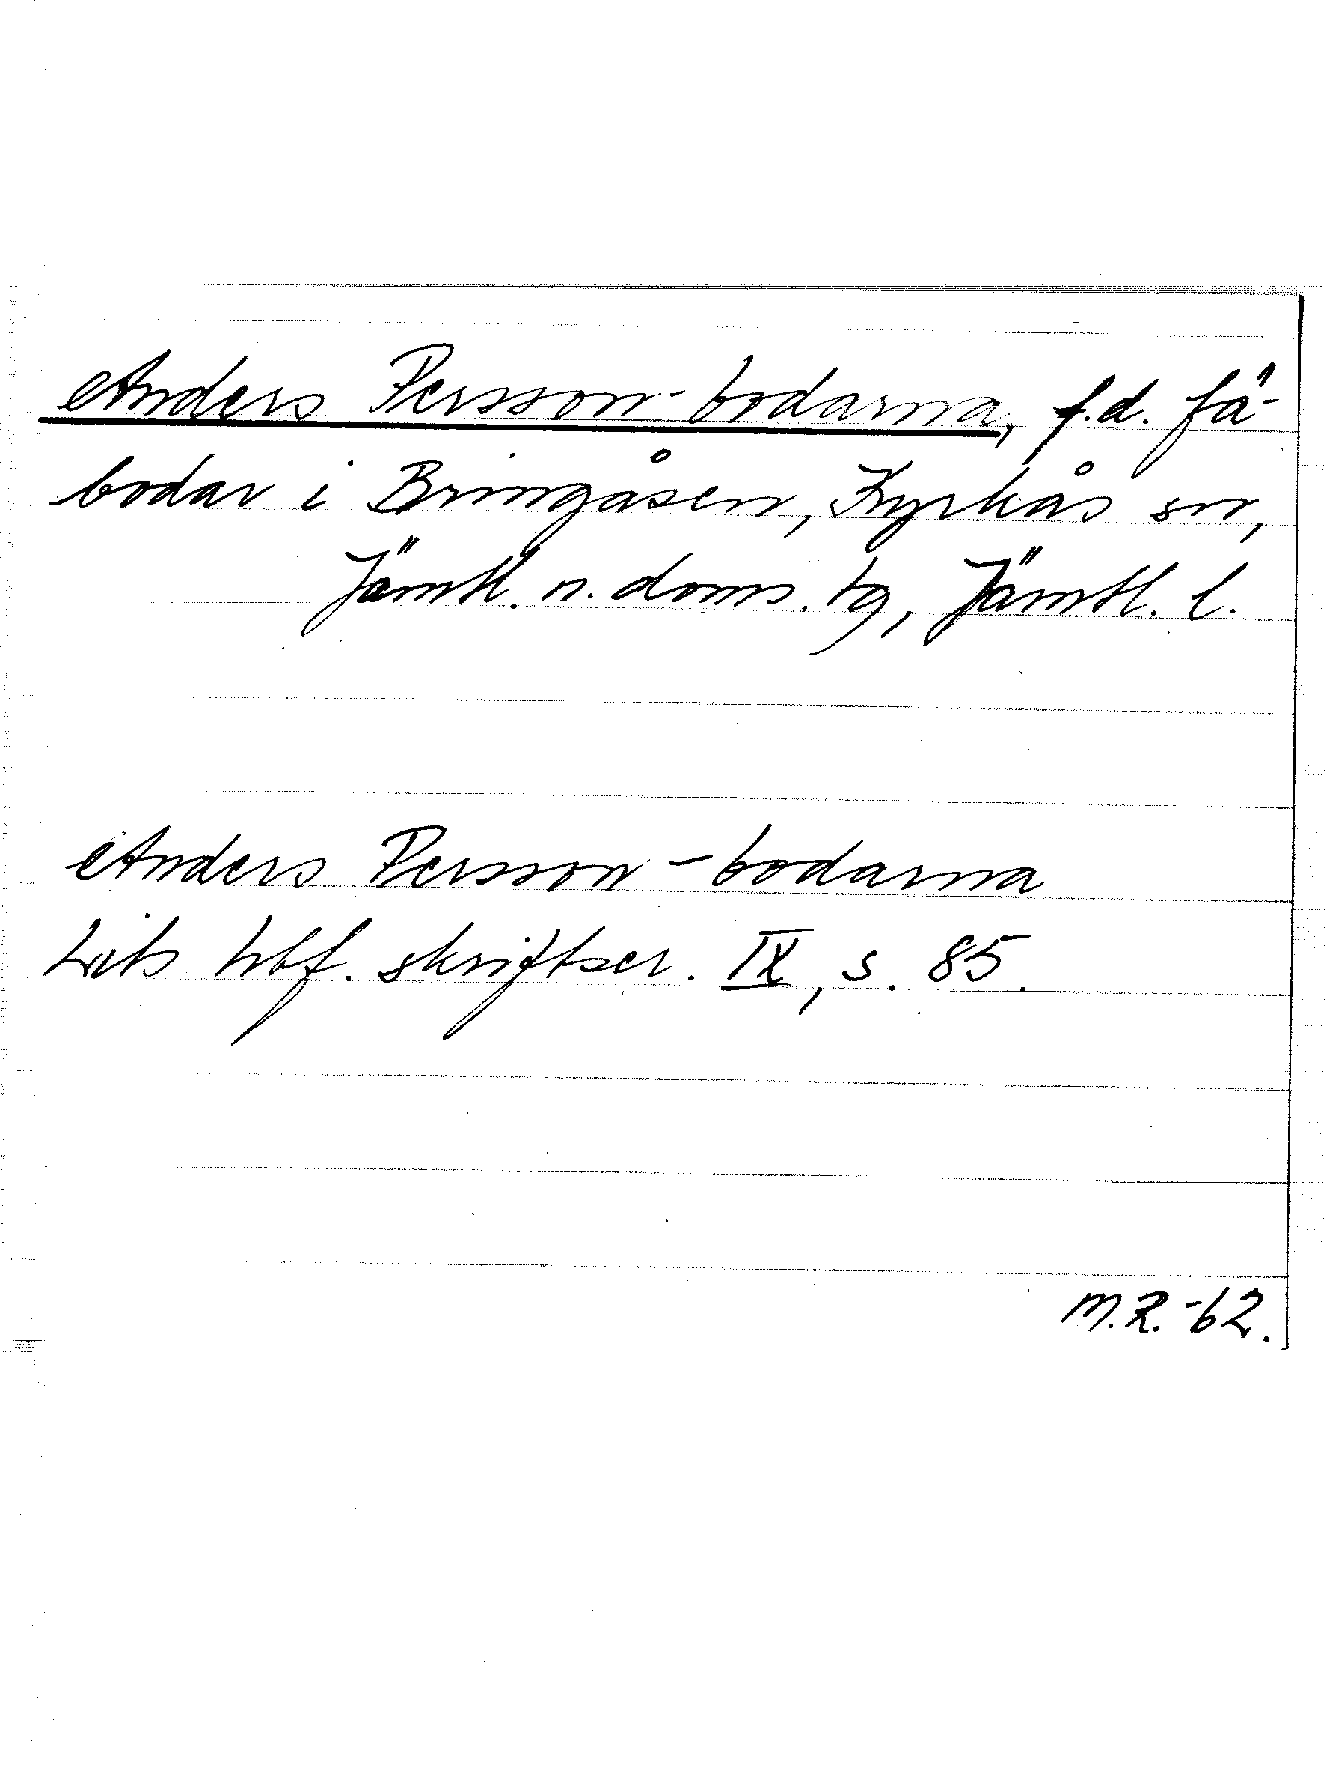 Anders Persson-bodarna, f.d. fä-
bodar i Bringåsen, Kyrkås sn,
Jämtl. n. doms. tg, Jämtl. l.
Anders Persson-bodarna
Lits hbf. skriftser. IX, s. 85.
M.R. -62.